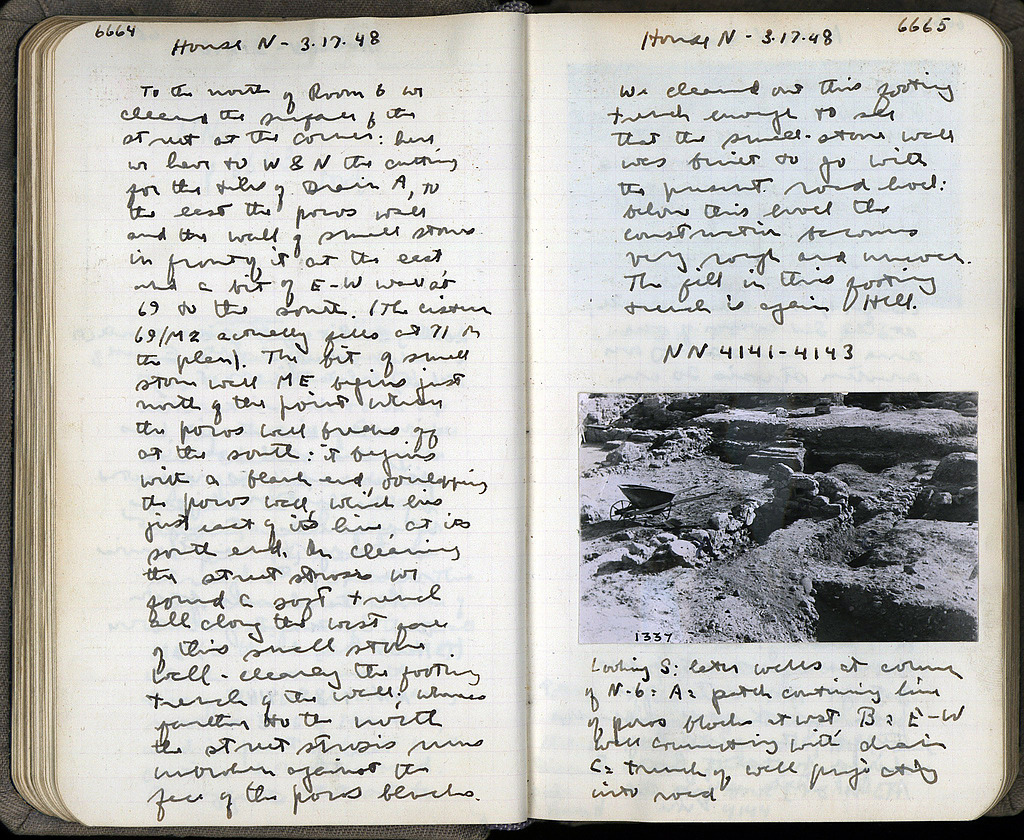 6664
House N - 3.17.48
To the north of Room 6 we
cleared the surface of the
street at the corner: here
we have to W & N the cutting
for the tiles of Drain A, to
the east the poros wall
and the wall of small stones
in front of it at the east
and a bit of E-W wall at
69 to the south. (The cistern
69/ME actually falls at 71 on
the plan). The bit of small
stone wall ME begins just
north of the point where
the poros wall breaks off
at the south: it begins
with a blank end, overlapping
the poros wall, which lies
just east of its line at its
south end. In clearing
the street strosis we
found a soft trench
all along the west face
of this small stone
wall - clearly the footing
trench of the wall, whereas
farther to the north
the street strosis runs
unbroken against the
face of the poros blocks.
6665
House N - 3.17.48
We cleaned out this footing
trench enough to see
that the small-stone wall
was built to go with
the present road level:
below this level the
construction becomes
very rough and uneven.
The fill in this footing
trench is again Hell.
NN 4141-4143
1337
Looking S: later walls at corner
of N-6: A: patch continuing line
of poros blocks at west B: E-W
wall connecting with drain
C: trench of wall projecting
into road